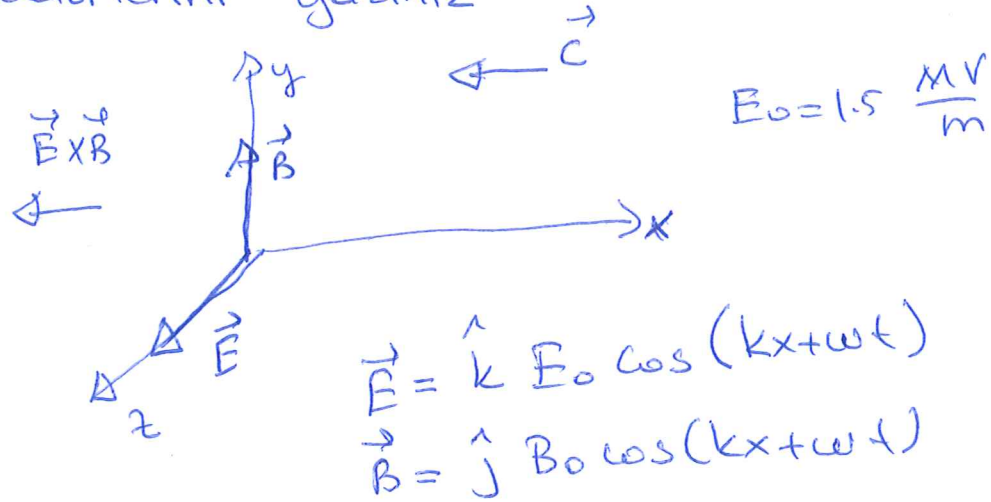 yazınız
y
C⃗
E₀=1.5 MV/m
E⃗xB⃗
B⃗
x
E⃗
z
E⃗ = k̂ E₀ cos(kx+ωt)
B⃗ = ĵ B₀ cos(kx+ωt)